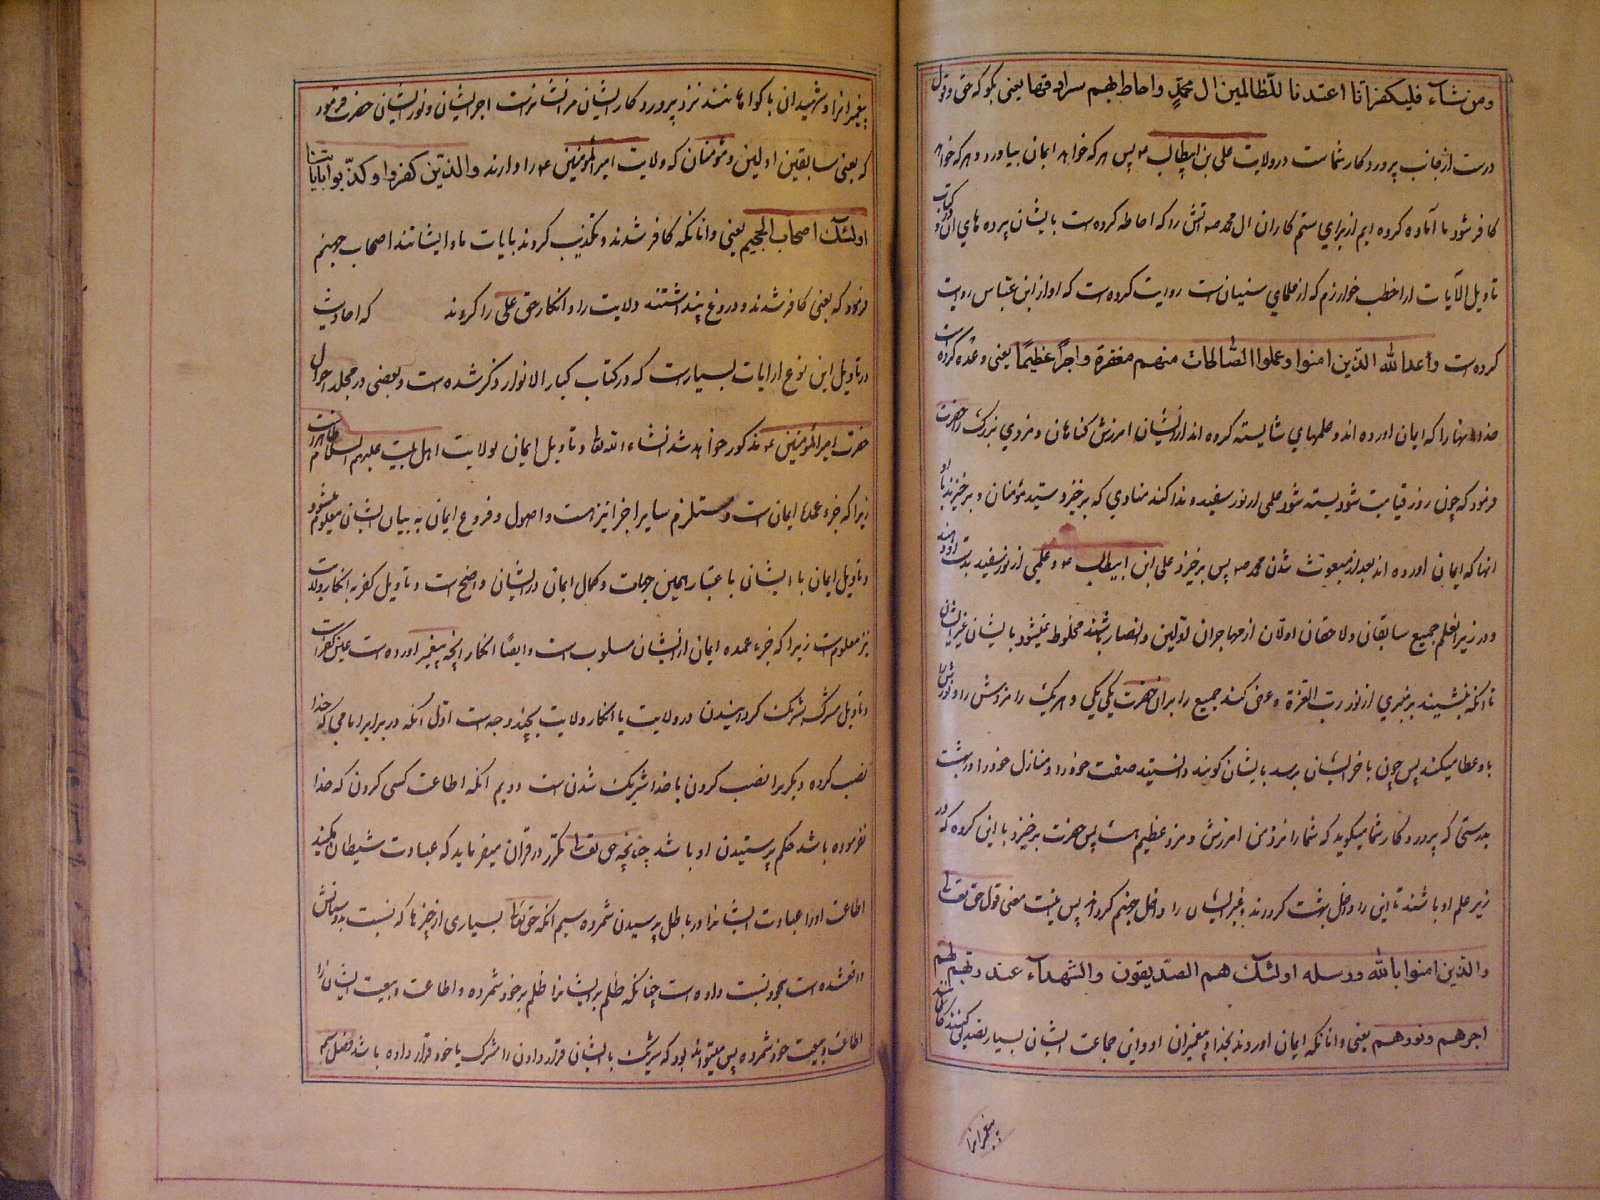 ومن شاء فلیکفر انا اعتدنا للظالمین ال محمد واحاط بهم سرادقها یعنی بگو که حق و قول
درست از جانب پروردکار شماست در ولایت علی بن ابیطالب ع پس هر که خواهد ایمان بیاورد و هر که خواهد
کافر شود ما آماده کرده ایم از برای ستم کاران ال محمد ص اتشی را که احاطه کرده است بایشان پرده های ان و در کتاب
تاویل الآیات از اخطب خوارزم که از علمای سنیان است روایت کرده است که او از ابن عباس روایت
کرده است وعد الله الذین امنوا وعملوا الصالحات منهم مغفرة واجرا عظیما یعنی وعده کرده است
خدا انها را که ایمان اورده اند و عملهای شایسته کرده اند از ایشان امرزش کناهان و مزدی بزرک را حضرت
فرمود که چون روز قیامت شود بسته شود علمی از نور سفید و ندا کند منادی که برخیزد سید مؤمنان و برخیزند با او
انها که ایمان اورده اند بعد از مبعوث شدن محمد ص پس برخیزد علی ابن ابیطالب ع و علمی از نور سفید بدست او دهند
و در زیر ان علم جمیع سابقان و لاحقان اولان از مهاجران اولین و انصار باشند مخلوط نمیشود بایشان غیر ایشان
تا انکه بنشیند بر منبری از نور رب العزة و عرض کنند جمیع را بران حضرت یکی یکی و هر یک را مزدش را و نورش را
باو عطا میکند پس چون باخر ایشان برسد بایشان کویند دانستید صفت خود را و منازل خود را در بهشت
بدرستی که پروردکار شما میکوید که شما را نزد من امرزش و مزد عظیم هست پس حضرت برخیزد با این کروه که در
زیر علم او باشند تا این را داخل بهشت کردند و غیر ایشان را داخل جهنم کرداند پس اینست معنی قول حق تعالی
والذین امنوا بالله ورسله اولئک هم الصدیقون والشهداء عند ربهم لهم
اجرهم ونورهم یعنی و انانکه ایمان اوردند بخدا و پیغمبران او و این جماعت ایشان بسیار تصدیق کنندکانند
پیغمبرانرا
پیغمبرانرا و شهیدان با کواهانند نزد پروردکار ایشان مر ایشانراست اجر ایشان و نور ایشان حضرت فرمود
که یعنی سابقین اولین و مؤمنان که ولایت امیر المؤمنین ع را دارند والذین کفروا وکذبوا بایاتنا
اولئک اصحاب الجحیم یعنی و انانکه کافر شدند و تکذیب کردند بایات ما و ایشانند اصحاب جهنم
فرمود که یعنی کافر شدند و دروغ پنداشتند ولایت را و انکار حق علی را کردند که احادیث
در تاویل این نوع از ایات بسیارست که در کتاب کبار الانوار ذکر شده است و بعضی در مجلد احوال
حضرت امیر المؤمنین ع مذکور خواهد شد انشاء الله تعالی و تاویل ایمان بولایت اهل بیت علیهم السلام ظاهر است
زیرا که جزء عمده ایمان است و مستلزم سایر اجزا نیز هست و اصول و فروع ایمان به بیان ایشان معلوم میشود
و تاویل ایمان با ایشان باعتبار همین جهات و کمال ایمان در ایشان واضح است و تاویل کفر به انکار ولایت
نیز معلوم است زیرا که جزء عمده ایمان از ایشان مسلوب است و ایضا انکار انچه پیغمبر اورده است عین کفر است
و تاویل شرک بشریک کردانیدن در ولایت یا انکار ولایت بچند وجه است اول انکه در برابر امامی که خدا
نصب کرده دیکریرا نصب کردن با خدا شریک شدن است دویم انکه اطاعت کسی کردن که خدا
نفرموده باشد حکم پرستیدن او باشد چنانچه حق تعالی مکرر در قران میفرماید که عبادت شیطان مکنید
اطاعت او را عبادت ایشانرا و باطل پرسیدن شمرده سیم انکه حق تعالی بسیاری از چیزها که نسبت بدوستانش
واقعشده است بخود نسبت داده است چنانکه ظلم بر ایشانرا ظلم بر خود شمرده و اطاعت و بیعت ایشان را
اطاعت و بیعت خود شمرده پس میتواند بود که شریک با ایشان قرار دادن را شرک با خود قرار داده باشد فصل سیم